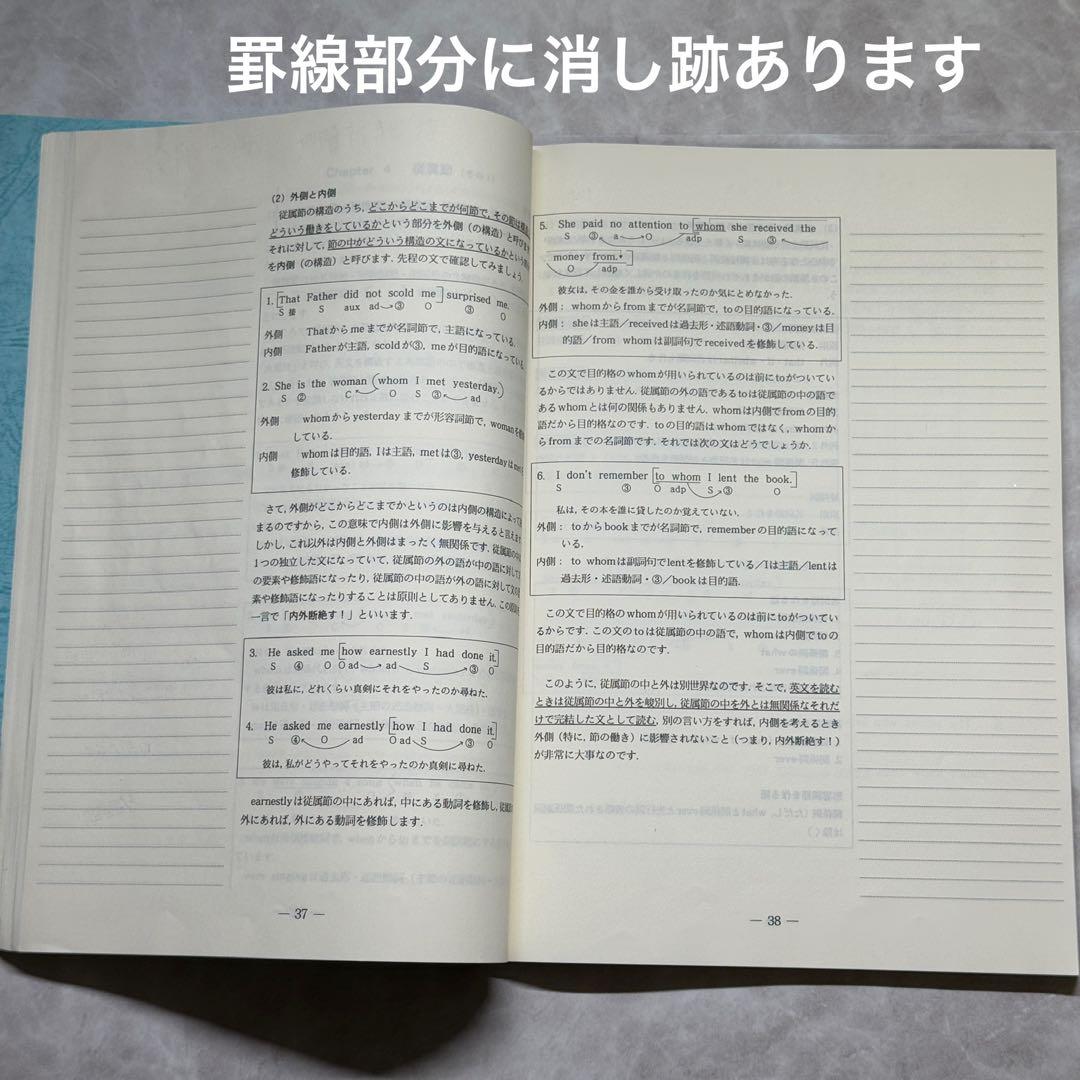 罫線部分に消し跡あります
(2) 外側と内側
従属節の構造のうち, どこからどこまでが何節で, その節は構造
どういう働きをしているかという部分を外側（の構造）と呼びます
それに対して, 節の中がどういう構造の文になっているかという
を内側（の構造）と呼びます. 先程の文で確認してみましょう.
1. [That Father did not scold me] surprised me.
S 接 S aux ad→③ O ③ O
外側 Thatからmeまでが名詞節で, 主語になっている.
内側 Fatherが主語, scoldが③, meが目的語になっている
2. She is the woman (whom I met yesterday.)
S ② C O S ③ ad
外側 whomからyesterdayまでが形容詞節で, womanを
している.
内側 whomは目的語, Iは主語, metは③, yesterdayはmetを
修飾している.
さて, 外側がどこからどこまでかというのは内側の構造によって
まるのですから, この意味で内側は外側に影響を与えると言えます
しかし, これ以外は内側と外側はまったく無関係です. 従属節の中は
1つの独立した文になっていて, 従属節の外の語が中の語に対して
の要素や修飾語になったり, 従属節の中の語が外の語に対して文の
素や修飾語になったりすることは原則としてありません. この
一言で「内外断絶す！」といいます.
3. He asked me [how earnestly I had done it.]
S ④ O O ad→ad S ③ O
彼は私に, どれくらい真剣にそれをやったのか尋ねた.
4. He asked me earnestly [how I had done it.]
S ④ O ad O ad S ③ O
彼は, 私がどうやってそれをやったのか真剣に尋ねた.
earnestlyは従属節の中にあれば, 中にある動詞を修飾し, 従属
外にあれば, 外にある動詞を修飾します.
— 37 —
5. She paid no attention to [whom she received the
S ③ a→O adp S ③
money from.]
O adp
彼女は, その金を誰から受け取ったのか気にとめなかった.
外側： whomからfromまでが名詞節で, toの目的語になっている.
内側： sheは主語／receivedは過去形・述語動詞・③／moneyは目
的語／from whomは副詞句でreceivedを修飾している.
この文で目的格のwhomが用いられているのは前にtoがついてい
るからではありません. 従属節の外の語であるtoは従属節の中の語で
あるwhomとは何の関係もありません. whomは内側でfromの目的
語だから目的格なのです. toの目的語はwhomではなく, whomか
らfromまでの名詞節です. それでは次の文はどうでしょうか.
6. I don't remember [to whom I lent the book.]
S ③ O adp S→③ O
私は, その本を誰に貸したのか覚えていない.
外側： toからbookまでが名詞節で, rememberの目的語になって
いる.
内側： to whomは副詞句でlentを修飾している／Iは主語／lentは
過去形・述語動詞・③／bookは目的語.
この文で目的格のwhomが用いられているのは前にtoがついてい
るからです. この文のtoは従属節の中の語で, whomは内側でtoの
目的語だから目的格なのです.
このように, 従属節の中と外は別世界なのです. そこで, 英文を読む
ときは従属節の中と外を峻別し, 従属節の中を外とは無関係なそれだ
けで完結した文として読む. 別の言い方をすれば, 内側を考えるとき
外側（特に, 節の働き）に影響されないこと（つまり, 内外断絶す！）
が非常に大事なのです.
— 38 —